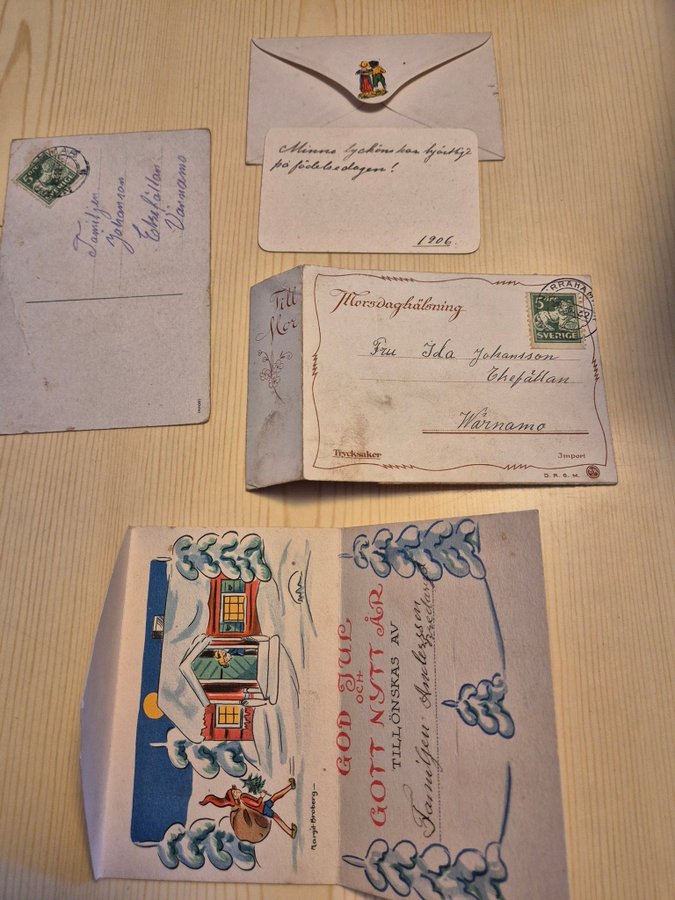 Minna lyckönskan hjärtligt
på födelsedagen!
1906.
Familjen
Johanson
Ekefällan
Värnamo
Till
Mor
Morsdaghälsning
5 ÖRE
SVERIGE
Fru Ida Johansson
Ekefällan
Wärnamo
Trycksaker
Import
D.R.G.M.
GOD JUL
OCH
GOTT NYTT ÅR
TILLÖNSKAS AV
Familjen Anderssen
Margit Broberg